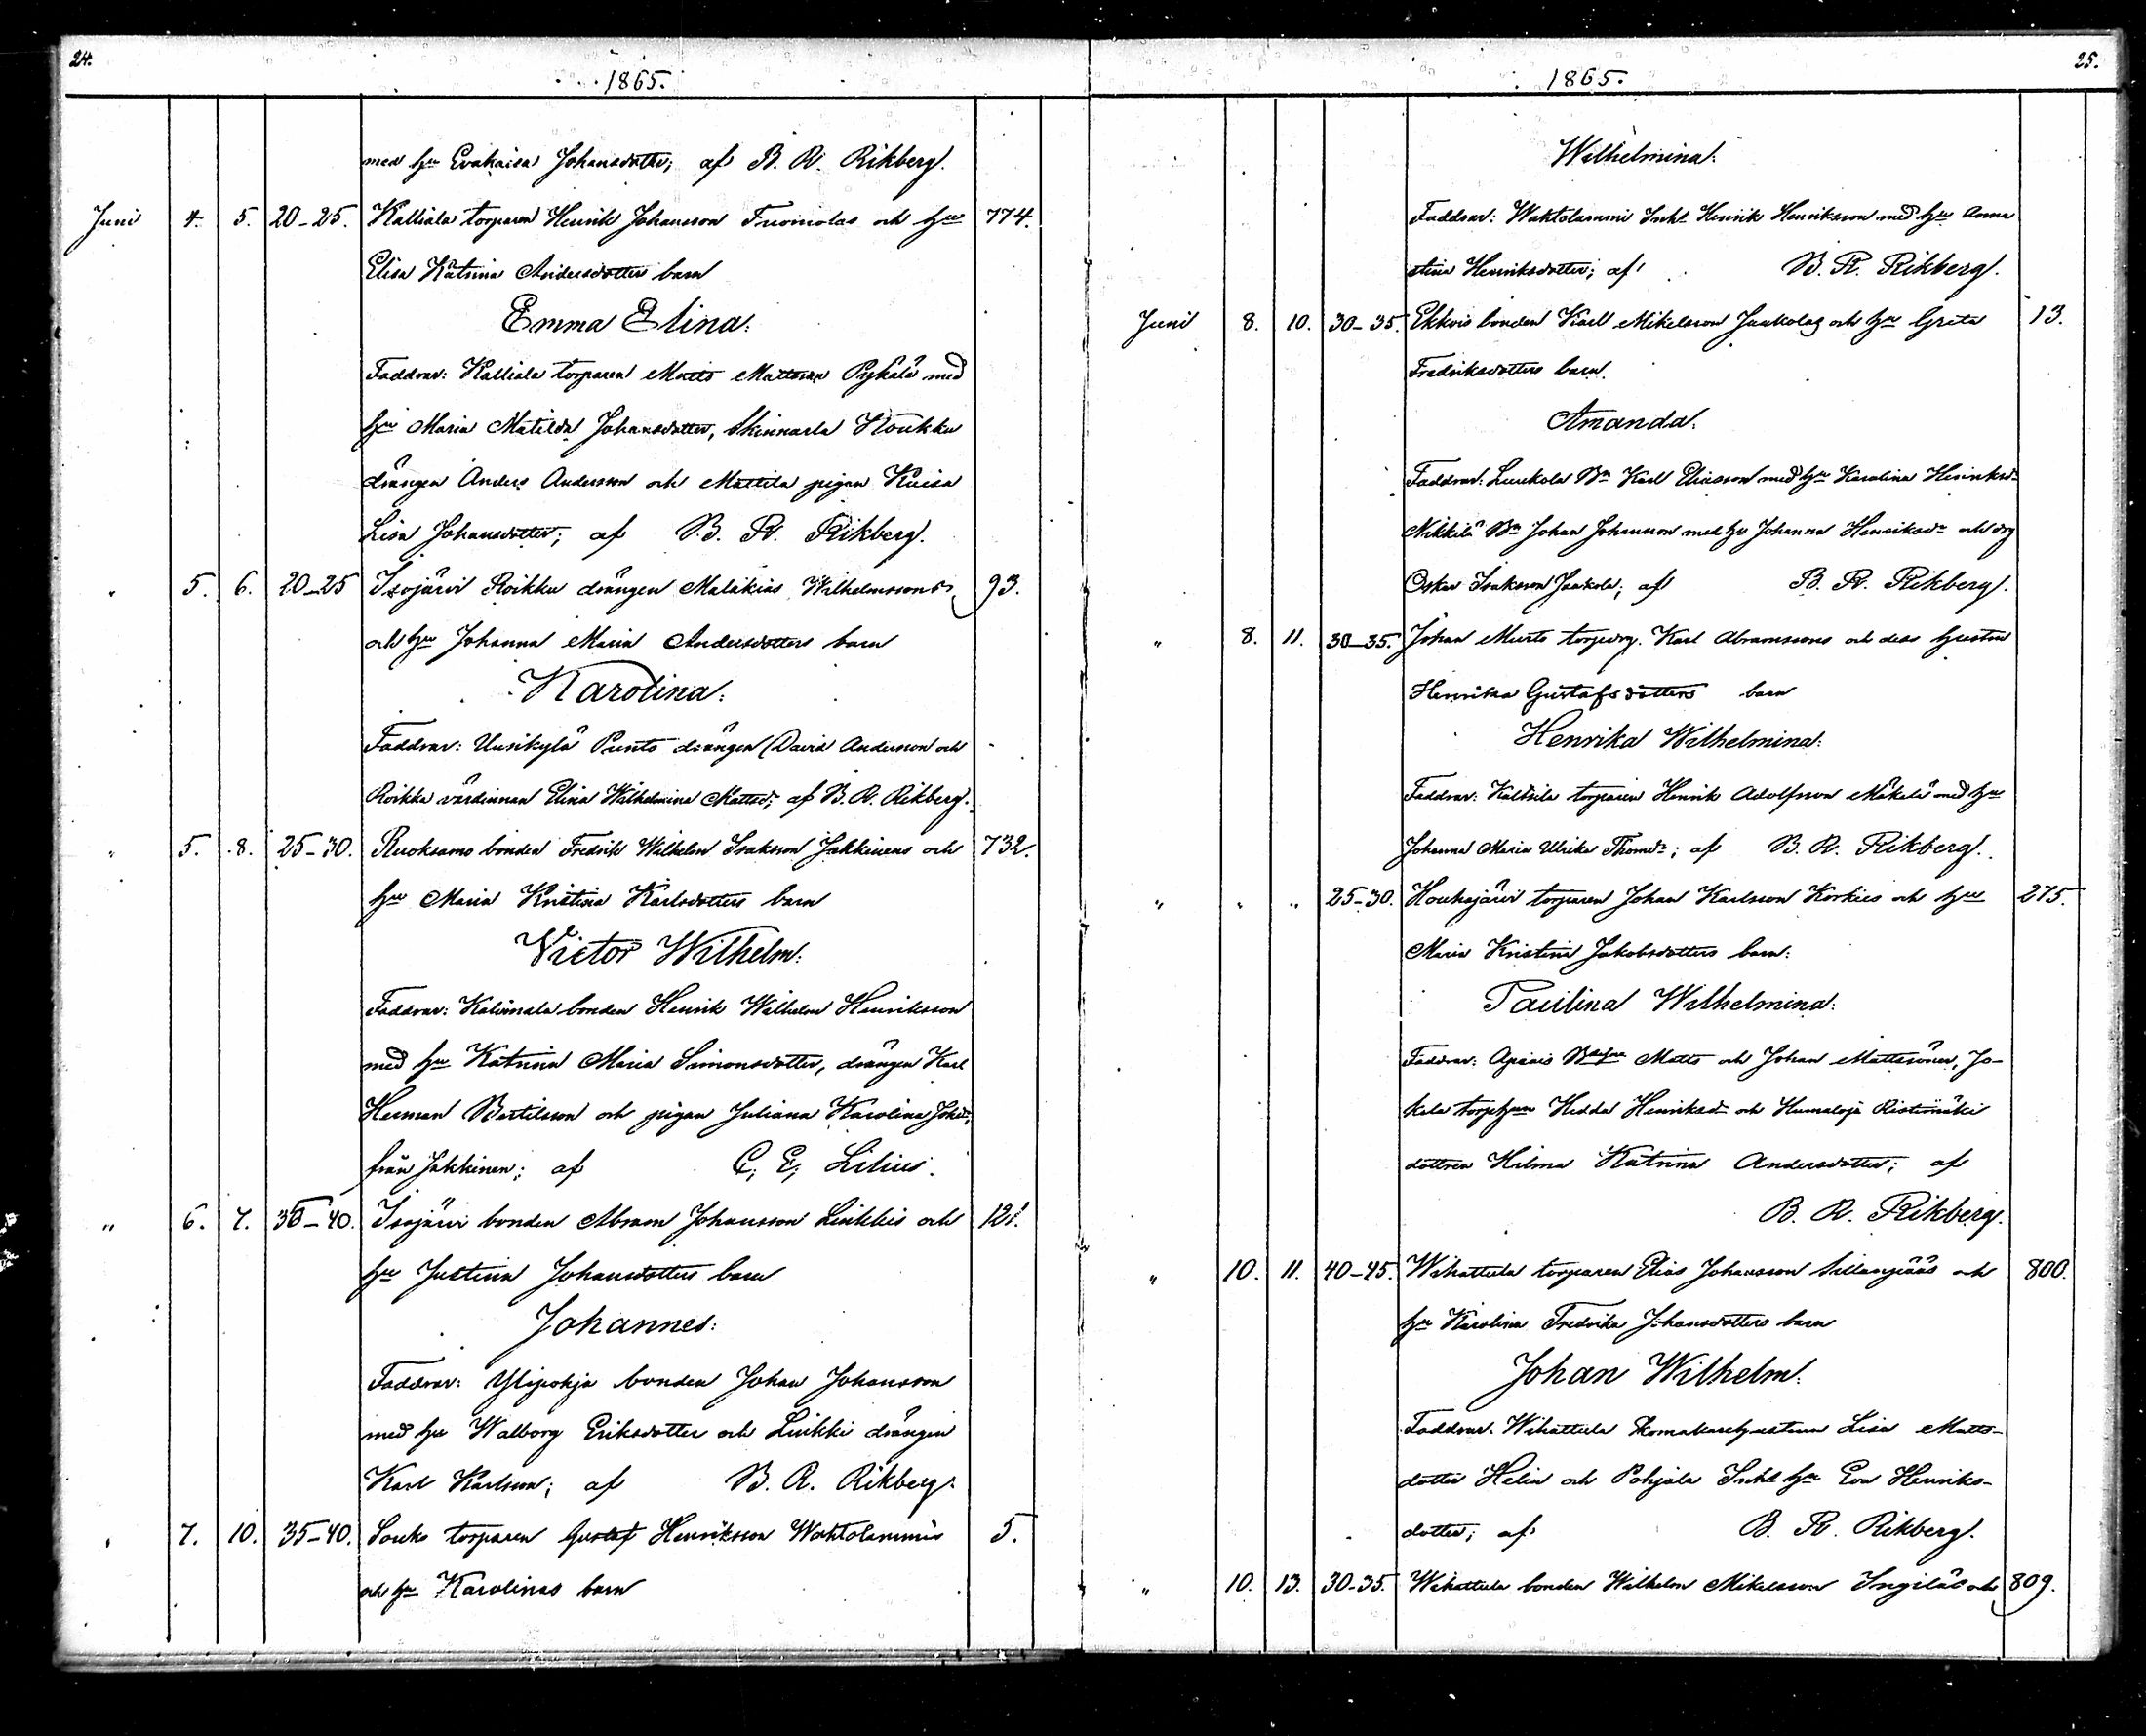 24.
1865.
med hu Evakaisa Johansdotter; af B. R. Rikberg.
Juni 4. 5. 20-25. Kalliala torparen Henrik Johansson Tuomolas och hu 774.
Elisa Katrina Andersdotters barn
Emma Elina:
Faddrar: Kalliala torparen Matts Mattsson Pykälä med
hu Maria Matilda Johansdotter, Skinnarla Houkku
drängen Anders Andersson och Mattila pigan Kaisa
Lisa Johansdotter; af B. R. Rikberg.
" 5. 6. 20-25 Isojärvi Roikku drängen Malakias Wilhelmssons 93.
och hu Johanna Maria Andersdotters barn
Karolina:
Faddrar: Uusikylä Punto drängen David Andersson och
Roikka värdinnan Elina Wilhelmina Mattsd; af B. R. Rikberg.
" 5. 8. 25-30. Ruoksamo bonden Fredrik Wilhelm Isaksson Jakkinens och 732.
hu Maria Kristina Karlsdotters barn
Victor Wilhelm:
Faddrar: bonden Henrik Wilhelm Henriksson
med hu Katrina Maria Simonsdotter, drängen Karl
Herman Bertilsson och pigan Juliana Karolina Johsdr,
från Jakkinen; af C. E. Lilius.
" 6. 7. 35-40. Isojärvi bonden Abram Johansson Liukkis och 121.
hu Justina Johansdotters barn
Johannes:
Faddrar: Ylipohja bonden Johan Johansson
med hu Walborg Eriksdotter och Liukki drängen
Karl Karlsson; af B. R. Rikberg.
" 7. 10. 35-40. Souko torparen Gustaf Henriksson Wahtolammis 5.
och hu Karolinas barn
25.
1865.
Wilhelmina:
Faddrar: Wahtolammi Inhs Henrik Henriksson med hu Anna
stina Henriksdotter; af B. R. Rikberg.
Juni 8. 10. 30-35. Ekkois bonden Karl Mikelsson Jaakolas och hu Greta 13.
Fredriksdotters barn.
Amanda:
Faddrar: Luukola Bn Karl Eliasson med hu Karolina Henriksdr
Nikkilä Bn Johan Johansson med hu Johanna Henriksdr och drg
Oskar Isaksson Jaakola; af B. R. Rikberg.
" 8. 11. 30-35. Johan Murto torpdrg. Karl Abramssons och dess hustru
Henrika Gustafsdotters barn
Henrika Wilhelmina:
Faddrar: Kaltsila torparen Henrik Adolfsson Mäkelä med hu
Johanna Maria Ulrika Thomsdr; af B. R. Rikberg.
" " " 25-30. Houhajärvi torparen Johan Karlsson Korkies och hu 275.
Maria Kristina Jakobsdotters barn:
Paulina Wilhelmina:
Faddrar: Matts och Johan Mattssöner, Jo-
kela torphun Hedda Henriksdr och Humaloja Ristimäki
dottren Hilma Katrina Andersdotter; af
B. R. Rikberg.
" 10. 11. 40-45. Wihattula torparen Elias Johansson Sillanpääs och 800.
hu Karolina Fredrika Johansdotters barn
Johan Wilhelm:
Faddrar. Wihattula skomakarehustrun Lisa Matts-
dotter Helin och Pohjala Inhs hu Eva Henriks-
dotter; af B. R. Rikberg.
" 10. 13. 30-35. Wihattula bonden Wilhelm Mikelsson Ingiläs och 809.